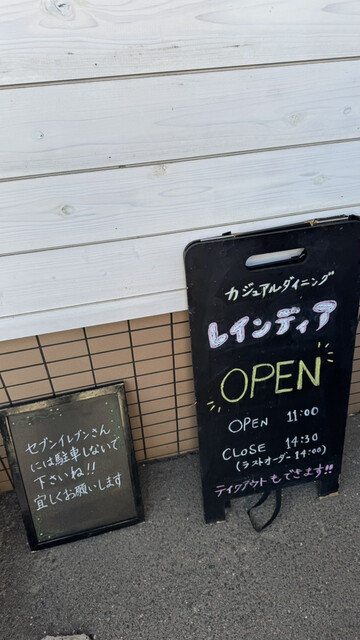 カジュアルダイニング
レインディア
OPEN
OPEN 11:00
CLOSE 14:30
(ラストオーダー 14:00)
テイクアウトもできます!!
セブンイレブンさん
には駐車しないで
下さいね!!
宜しくお願いします